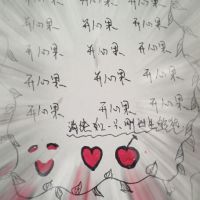 开心果 开心果 开心果
开心果 开心果 开心果
开心果 开心果 开心果
开心果 开心果 开心果
开心果 开心果 开心果